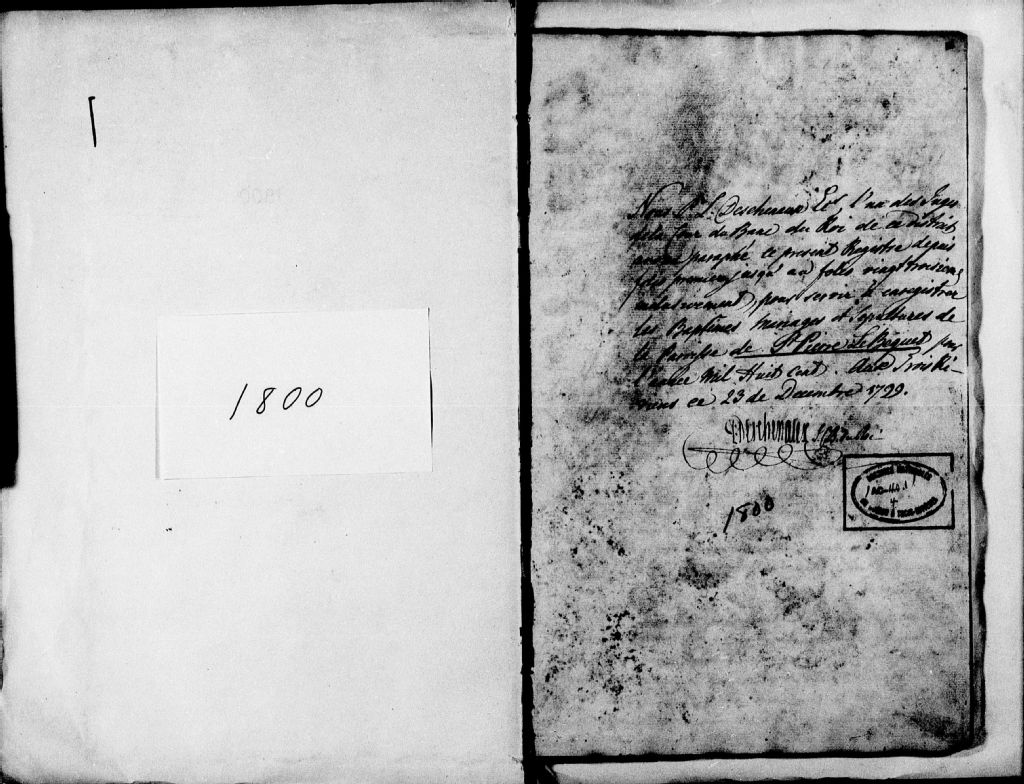 1800
Nous P. L. Deschenaux Ecr. l'un des Juges
de la Cour du Banc du Roi de ce district
avons paraphé le present Registre depuis
feuillet premier jusqu'au folio vingt troisieme
inclusivement, pour servir à enregistrer
les Baptêmes Mariages et Sépultures de
la Paroisse de St. Pierre Le Béquet pour
l'année Mil Huit Cent. Aux Trois Ri-
vieres ce 23 de Decembre 1799.
P. L. Deschenaux
1800